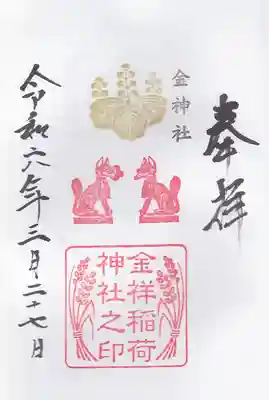 奉拝
金神社
金祥稲荷
神社之印
令和六年三月二十七日